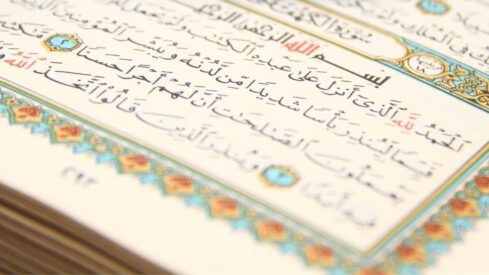 سُورَةُ الكَهْفِ
بِسْمِ اللَّهِ الرَّحْمَٰنِ الرَّحِيمِ
ٱلْحَمْدُ لِلَّهِ ٱلَّذِىٓ أَنزَلَ عَلَىٰ عَبْدِهِ ٱلْكِتَٰبَ وَلَمْ يَجْعَل
قَيِّمًا لِّيُنذِرَ بَأْسًا شَدِيدًا مِّن لَّدُنْهُ وَيُبَشِّرَ ٱلْمُؤْمِنِينَ
يَعْمَلُونَ ٱلصَّٰلِحَٰتِ أَنَّ لَهُمْ أَجْرًا حَسَنًا ٢ مَّٰكِثِينَ
فِيهِ أَبَدًا ٣ وَيُنذِرَ ٱلَّذِينَ قَالُوا۟ ٱتَّخَذَ ٱللَّهُ
٢٩٣